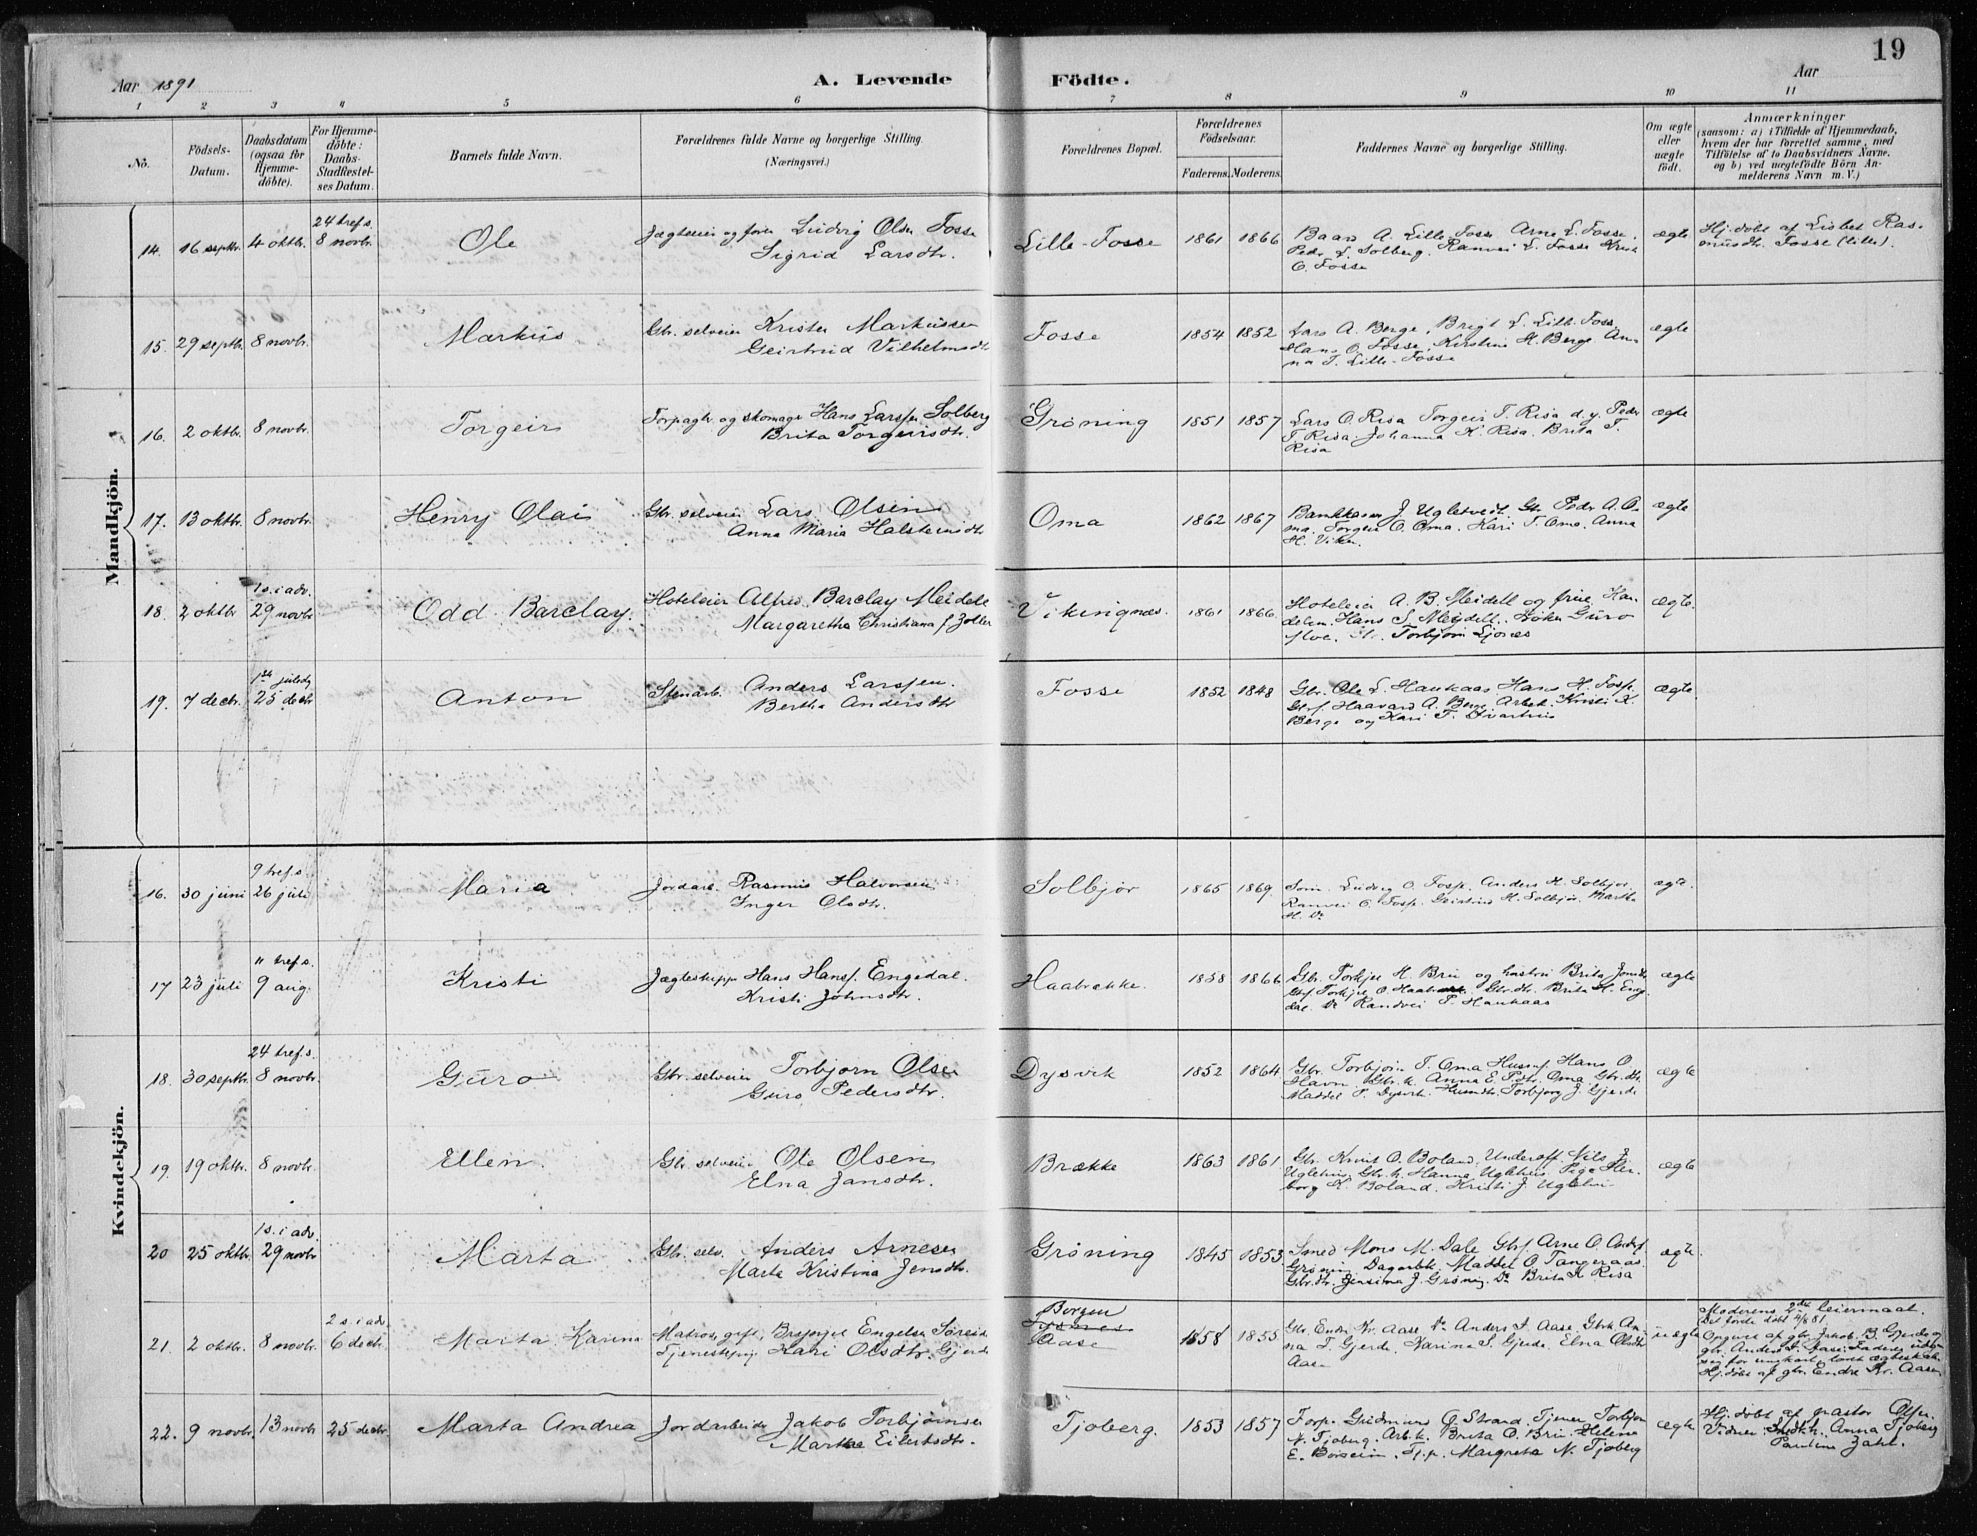 19
Aar 1891 A. Levende Födte. Aar
1 2 3 4 5 6 7 8 9 10 11
No.
Födsels-Datum.
Daabsdatum (ogsaa for Hjemme-döbte).
For Hjemme-döbte: Daabs-Stadfestel-ses Datum.
Barnets fulde Navn.
Forældrenes fulde Navne og borgerlige Stilling. (Næringsvei.)
Forældrenes Bopæl.
Forældrenes Födselsaar.
Faderens. Moderens.
Faddernes Navne og borgerlige Stilling.
Om ægte eller uægte födt.
Anmærkninger
(saasom: a) i Tilfælde af Hjemmedaab,
hvem der har forrettet samme, med
Tilföielse af to Daabsvidners Navne,
og b) ved uægtefödte Börn An-
melderens Navn m.V.)
Mandkjön.
14. 16 septbr. 4 oktbr. 24 tref.s. 8 novbr. Ole
Jægteeier og fører Ludvig Olsen Fosse
Sigrid Larsdtr.
Lille-Fosse 1861 1866
Baard A. Lille Fosse Arne L. Fosse.
Peder L. Solberg. Ranvei L. Fosse
O. Fosse
ægte
Hj. döbt af Lisbet Ras-
musdtr. Fosse (lille).
15. 29 septbr. 8 novbr. Markus
Gbr. selveier Krister Markussen
Geirtrud Vilhelmsdtr
Fosse 1854 1852
Lars A. Berge, Brigt L. Lille-Foss
Hans O. Fosse, Kirstine H. Berge An-
na T. Lille-Fosse
ægte
16. 2 oktbr. 8 novbr. Torgeir
Torpagtr. og skomager Hans Larssen Solberg
Brita Torgeirsdtr.
Grøning 1851 1857
Lars O. Risa Torgeir T. Risa d.y. Peder
T. Risa. Johanna K. Risa. Brita T.
Risa
ægte
17. 13 oktbr. 8 novbr. Henry Olai
Gbr. selveier Lars Olsen
Anna Maria Halsteinsdtr
Oma 1862 1867
J. Ugletvedt. Gbr Peder A. O-
ma. Torgeir O. Oma. Kari T. Oma. Anna
H. Viken.
ægte
18. 2 oktbr 1 s. i adv. 29 novbr Odd Barclay.
Hoteleier Alfred Barclay Meidell
Margaretha Christiana f. Zoller
Vikingnæs. 1861 1866.
Hoteleier A. B. Meidell og frue, Han-
delsm. Hans S. Meidell. Guro
Moe. Torbjørn Ljones
ægte.
19. 7 decbr. 1ste juledag 25 decbr Anton
Stenarb. Anders Larssen.
Bertha Andersdtr
Fosse 1852 1848
Gbr. Ole L. Haukaas Hans H. Foss.
Gbrf. Haavard A. Berge Arbek. Kristi K.
Berge og Kari T.
ægte.
Kvindekjön.
16. 30 juni 9 tref.s. 26 juli Maria
Jordarb. Rasmus Halvorsen
Inger Olsdtr.
Solbjør 1865 1869.
Ludvig O. Foss. Anders H. Solbjør.
Ranvei O. Foss. H. Solbjør. Martha
H. do
ægte.
17 23 juli 11 tref.s. 9 aug. Kristi
Jægteskipper Hans Hansf. Engedal.
Kristi Johnsdtr.
Haabrække. 1858 1866
Gbr. Torkjel H. Bru og hustru Brita
Torkjel O. Haabrække. Gbr.dtr. Brita H. Enge-
dal. do Randvei T. Haukaas
ægte
18. 30 septbr. 24 tref.s. 8 novbr. Guro
Gbr. selveier Torbjørn Olsen
Guro Pedersdtr.
Dysvik 1852 1864
Gbr. Torbjørn T. Oma Husmf. Hans O.
Havn. Gbr.k. Anna E. Oma. Gbr.dtr.
Maddel P. Dysvik. Husmdtr. Torbjørg J. Gjerde
ægte
19. 19 oktbr. 8 novbr. Ellen.
Gbr. selveier Ole Olsen
Elna Jansdtr.
Brække 1863 1861
Gbr. Knut O. Boland. Underoff. Nils J.
Gbr.k. Hanna. Pige Her-
borg K. Boland. Kristi J.
ægte
20 25 oktbr. 1 s. i adv. 29 novbr Marta
Gbr. selv. Anders Arnesen
Marta Kristina Jensdtr.
Grøning 1845 1853
Smed Mons M. Dale Gbrf. Arne O.
Grøning Maddel O. Tangeraas
Gbr.dtr. Jensina J. Grøning. do Brita K. Risa
ægte.
21. 2 oktbr. 8 novbr. 2 s. i adv. 6 decbr. Marta Karina
Matros, gift, Engelsen Søreid
Tjenestepige Kari Olsdtr. Gjerde
Bergen
Aase
1858 1855
Gbr. Endre Kr. Aase do Anders J. Aase. Gbrk An-
na T. Gjerde. Karina S. Gjerde. Elna Olsdtr
Aase
uægte
Moderens 2det leiermaal.
Det förste döbt 81.
Opgivet af gbr. Jakob B. Gjerde og
gbr. Anders J. Aase. Faderen
sig for ungkarl
Hj. döbt af gbr. Endre Kr. Aase
22. 9 novbr. 13 novbr 25 decbr Marta Andrea
Jordarbeider Jakob Torbjørnsen
Martha Eilertsdtr.
Tjoberg. 1853 1857
Forp. Gudmund O. Strand. Tjener Torbjørn
N. Tjoberg. Arb.k. Brita O. Bru. Helene
E. Børseim. Tj.p. Margreta N. Tjoberg
ægte
Hj. döbt af pastor Olsen.
Vidner: Anna Tjoberg
Pauline Zahl.